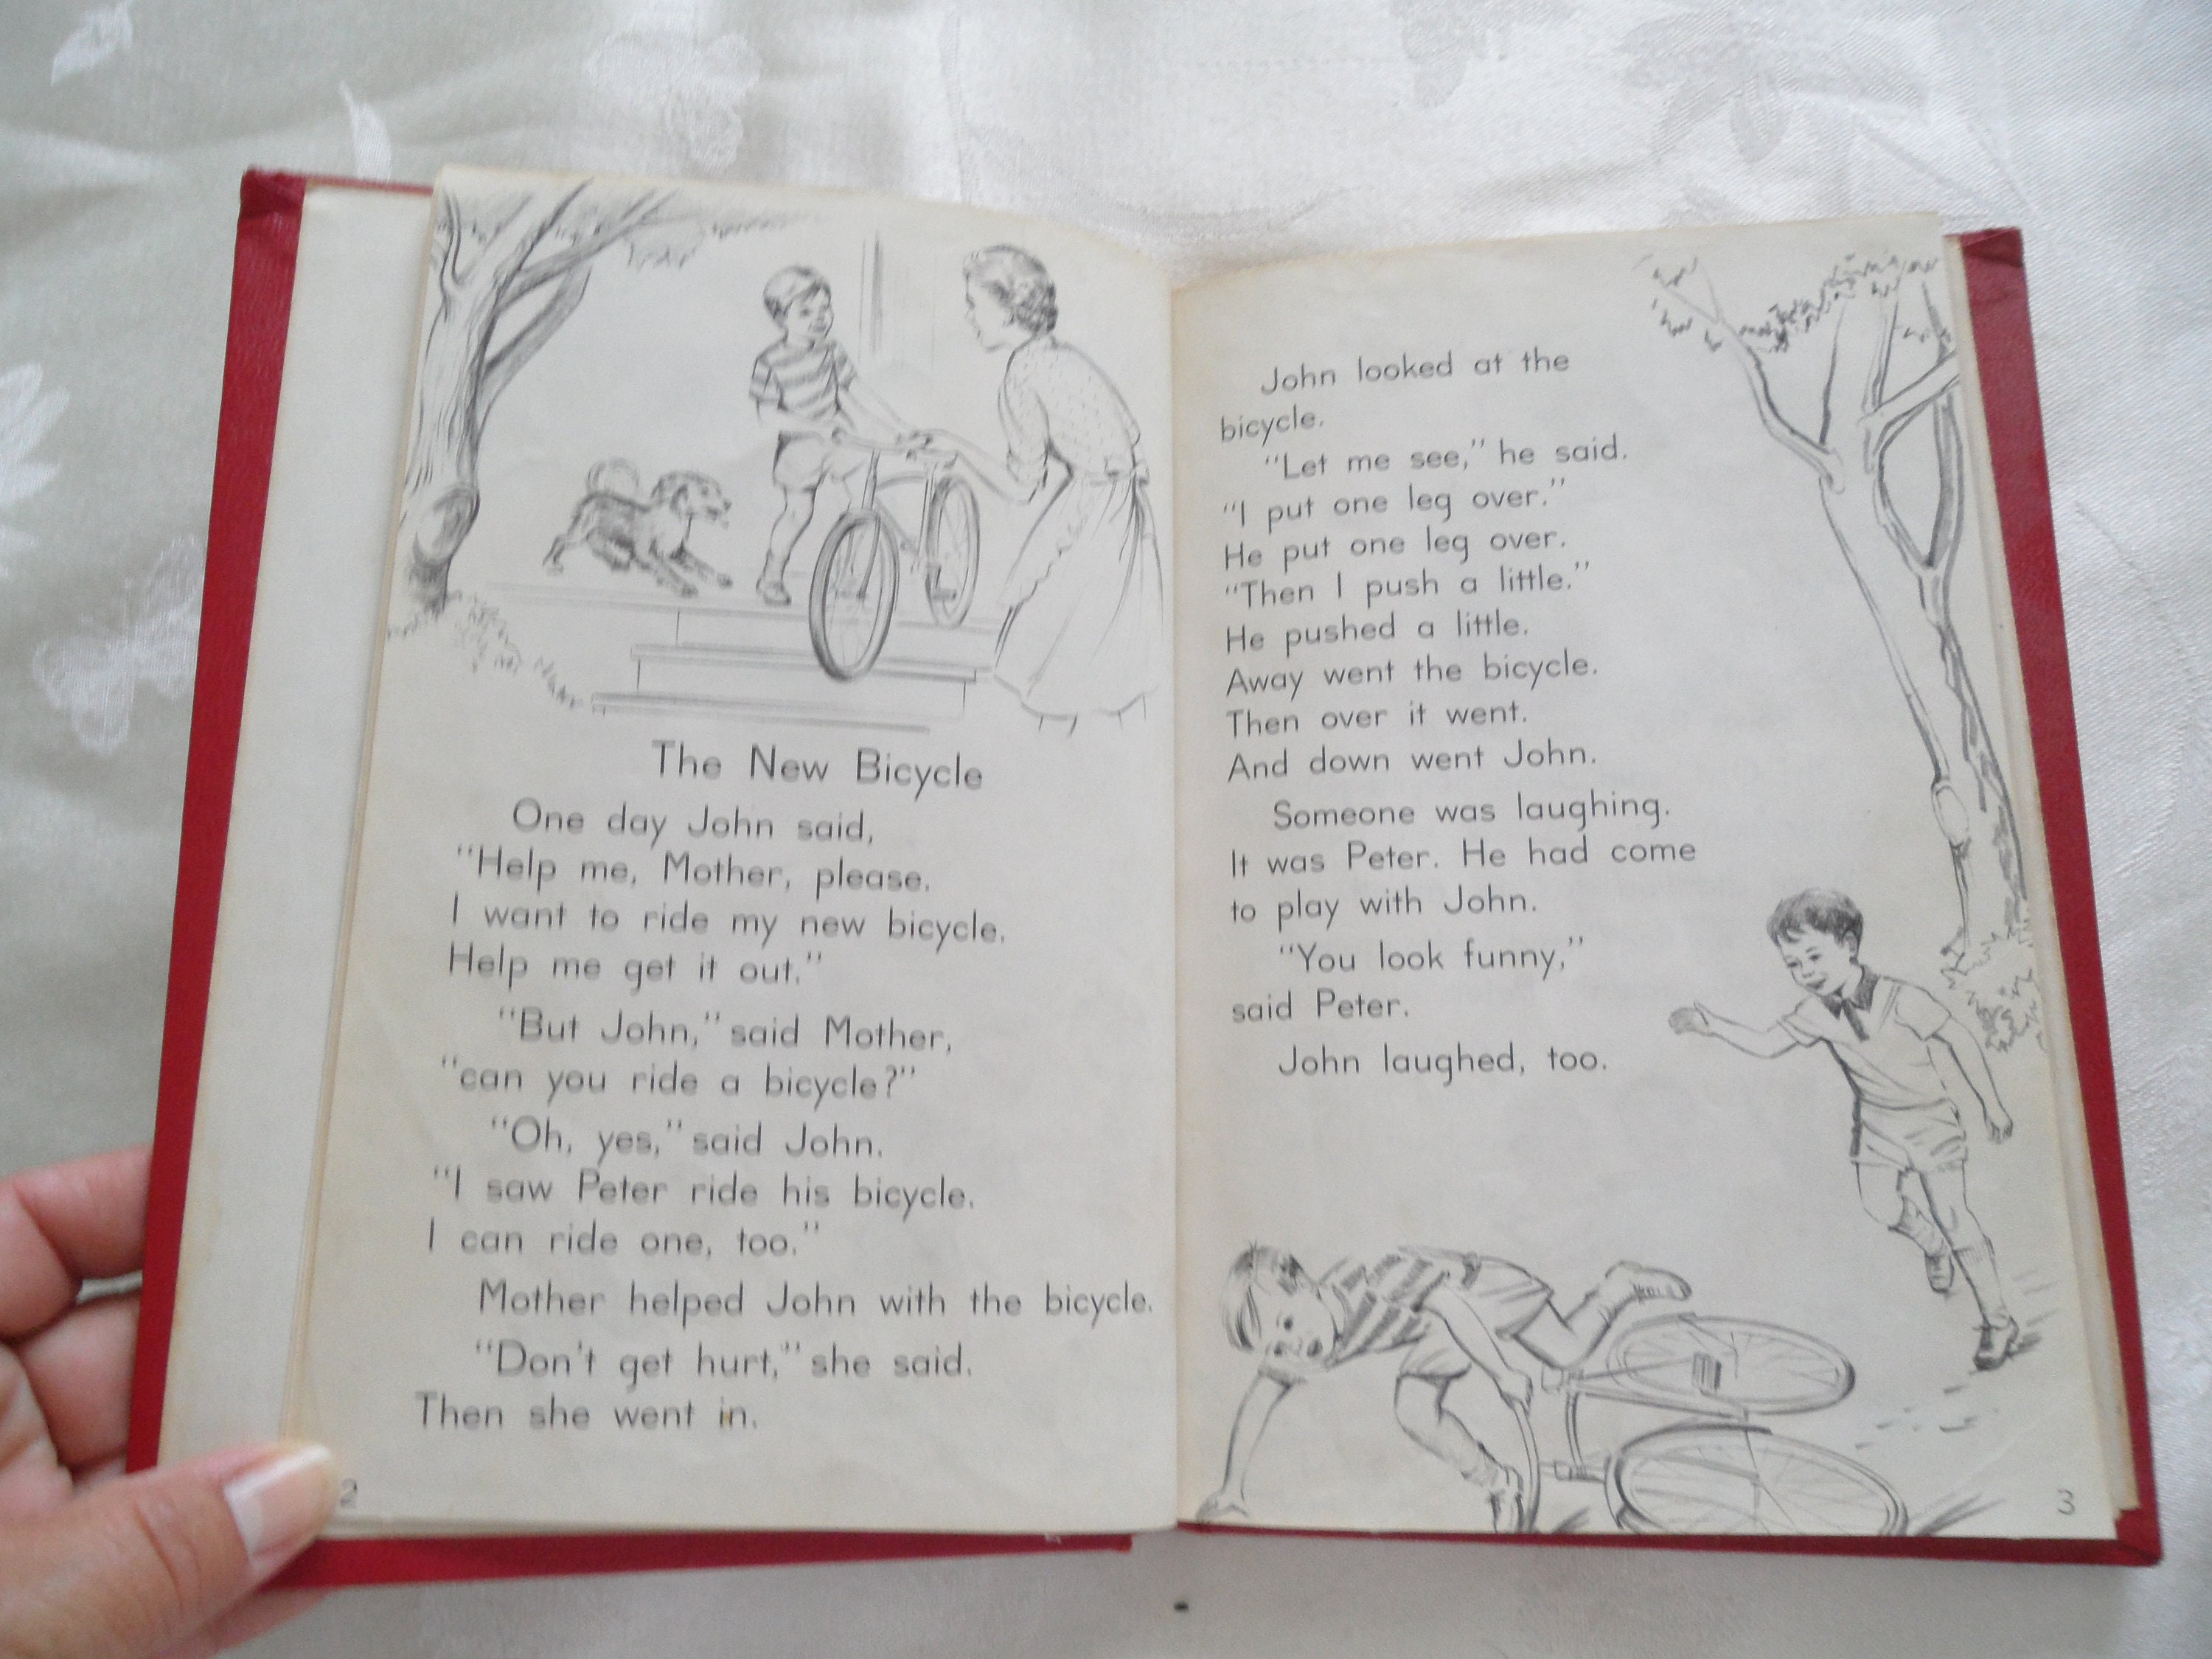 The New Bicycle
One day John said,
“Help me, Mother, please.
I want to ride my new bicycle.
Help me get it out.”
“But John,” said Mother,
“can you ride a bicycle?”
“Oh, yes,” said John.
“I saw Peter ride his bicycle.
I can ride one, too.”
Mother helped John with the bicycle.
“Don't get hurt,” she said.
Then she went in.
2
John looked at the
bicycle.
“Let me see,” he said.
“I put one leg over.”
He put one leg over.
“Then I push a little.”
He pushed a little.
Away went the bicycle.
Then over it went.
And down went John.
Someone was laughing.
It was Peter. He had come
to play with John.
“You look funny,”
said Peter.
John laughed, too.
3